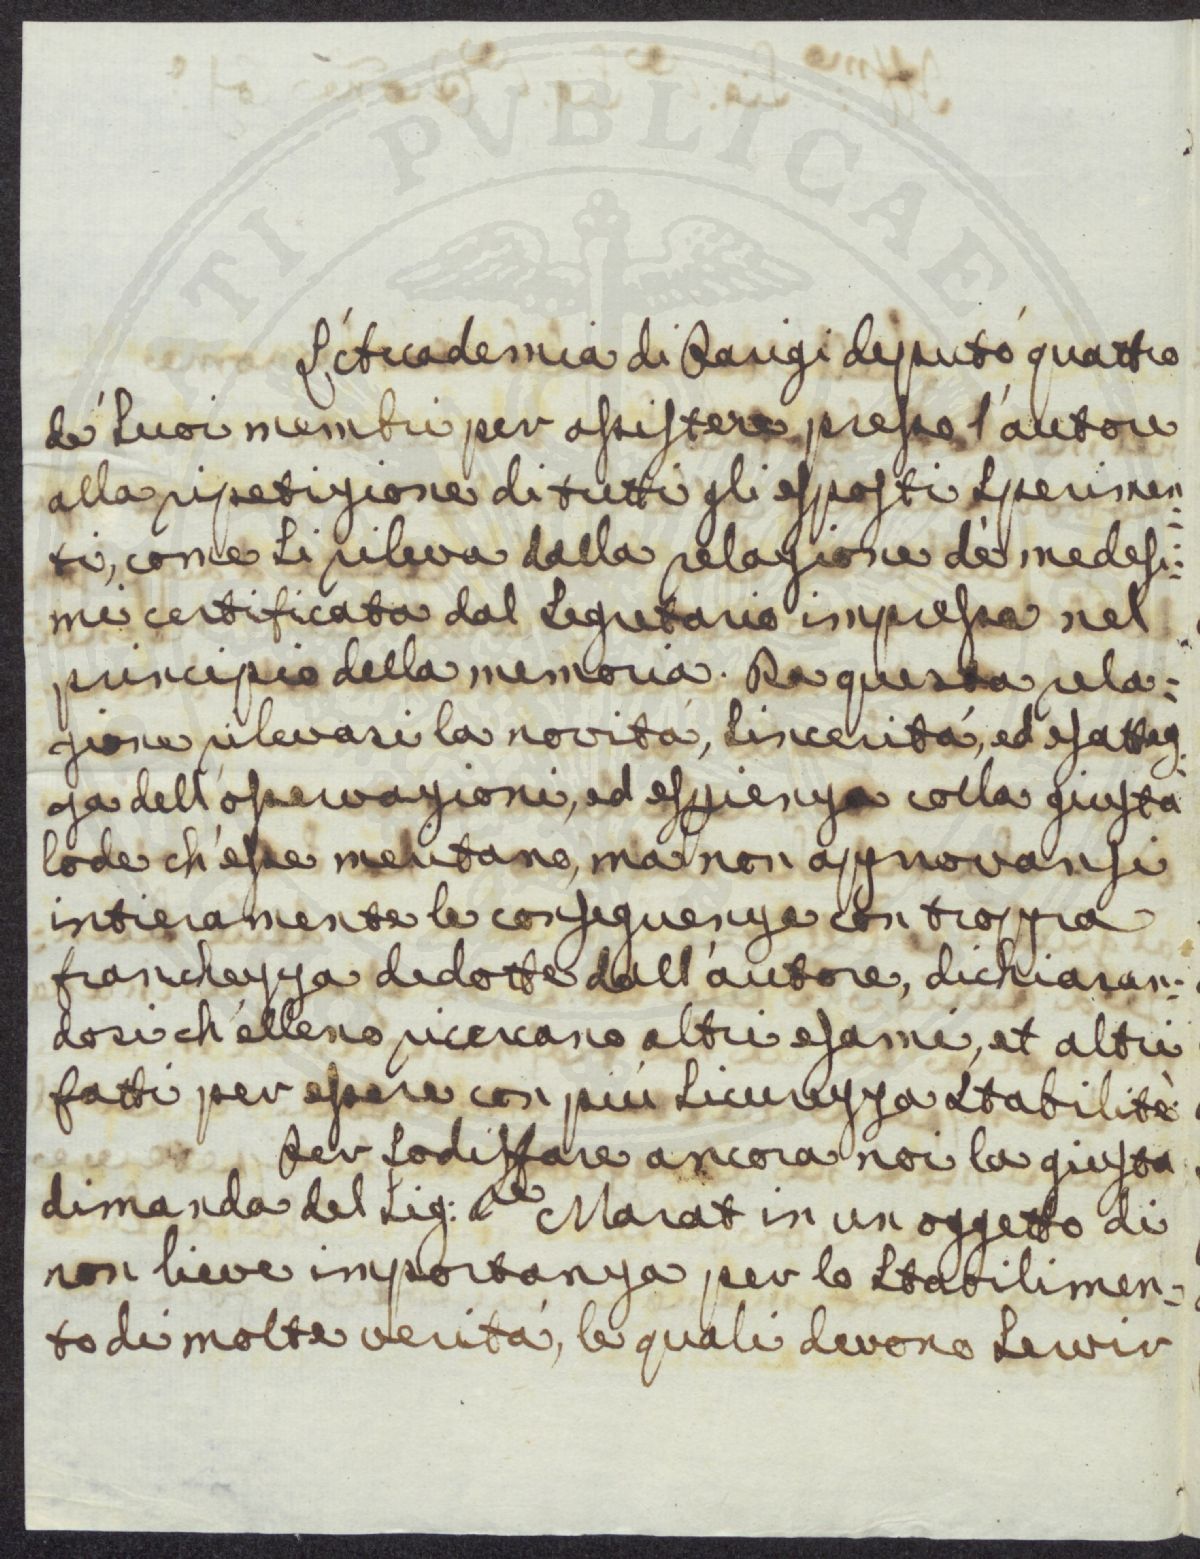 TI PVBLICAE
L'Accademia di Parigi deputò quattro
de' suoi membri per assistere presso l'autore
alla ripetizione di tutti gli esposti sperimen-
ti, come si rileva dalla relazione de' medesi-
mi certificata dal Segretario impressa nel
principio della memoria. Da questa rela-
zione rilevasi la novità, sincerità, ed esattez-
za dell'osservazioni, ed espienza colla giusta
lode ch'esse meritano, ma non approvansi
intieramente le conseguenze con troppa
franchezza dedotte dall'autore, dichiaran-
dosi ch'elleno ricercano altri esami, et altri
fatti per essere con più sicurezza stabilite.
Per sodisfare ancora noi la giusta
dimanda del Sig: Marat in un oggetto di
non lieve importanza per lo stabilimen-
to di molte verità, le quali devono servir